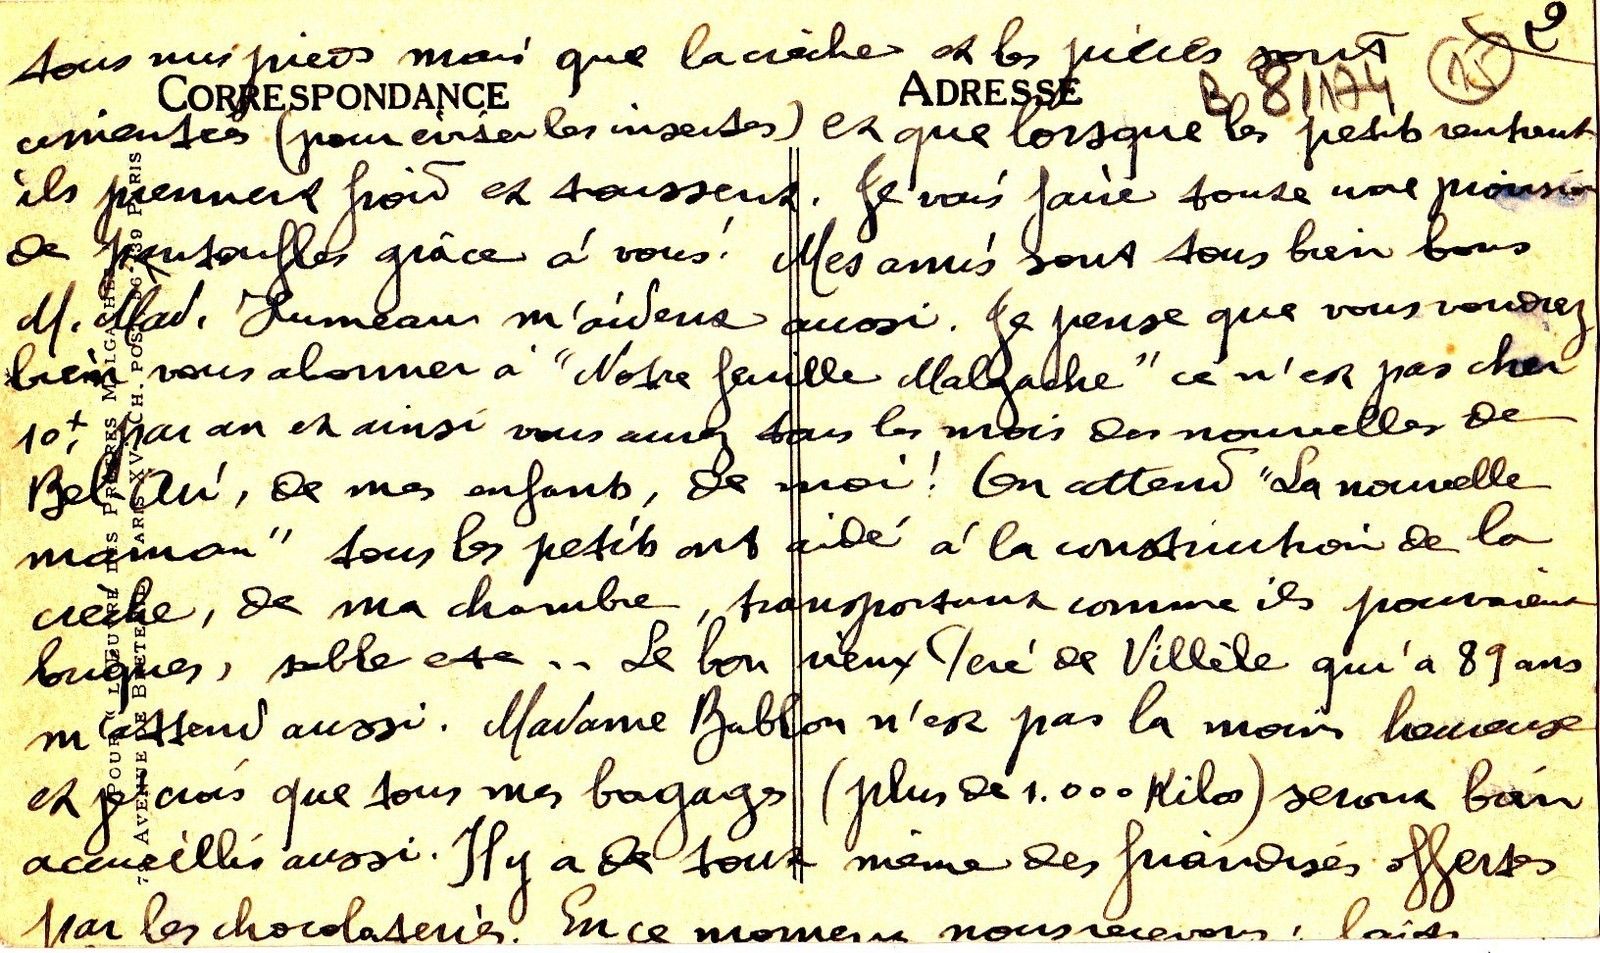 2
tous nus pieds mais que la crèche et les pièces sont
CORRESPONDANCE
ADRESSE
B 8/174
15
cimentées (pour éviter les insectes) et que lorsque les petits rentrent
ils prennent froid et toussent. Je vais faire toute une provision
de pantoufles grâce à vous! Mes amis sont tous bien bons
M. Mad. Humeau m'aident aussi. Je pense que vous voudrez
bien vous abonner à "Notre feuille Malgache" ce n'est pas cher
10f par an et ainsi vous aurez tous les mois des nouvelles de
Bel Air, de mes enfants, de moi! On attend "La nouvelle
maman" tous les petits ont aidé à la construction de la
crèche, de ma chambre, transportant comme ils pouvaient
briques, sable etc .. Le bon vieux Père de Villèle qui a 89 ans
m'attend aussi. Madame Bablon n'est pas la moins heureuse
et je crois que tous mes bagages (plus de 1.000 Kilos) seront bien
accueillis aussi. Il y a de tout même des friandises offertes
par les chocolateries. En ce moment nous recevons : laits
POUR "L'ŒUVRE DES PRÊTRES MALGACHES"
AVENUE DE BRETEUIL PARIS XV. CH. POST. 39 PARIS